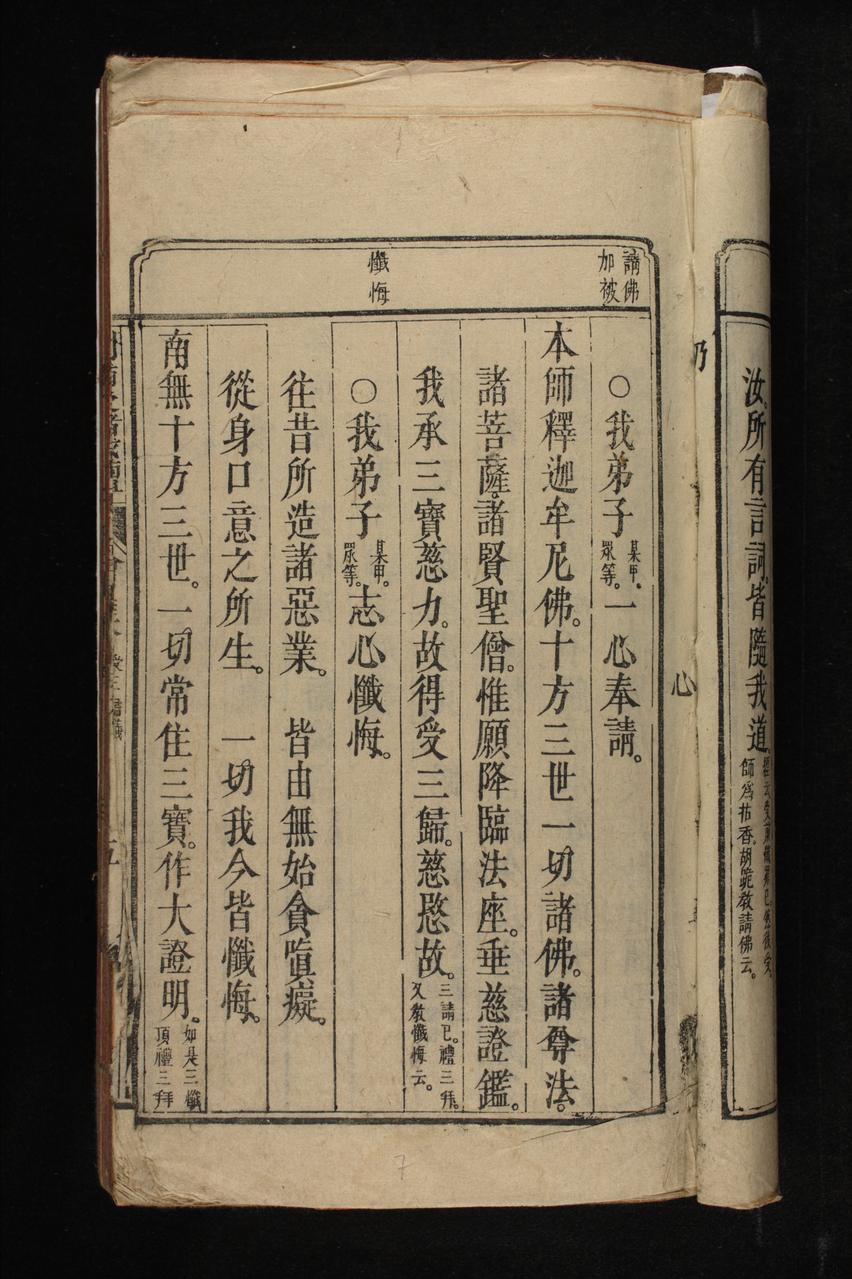 汝所有言詞。皆隨我道。
師為拈香。胡跪教請佛云。
心
請佛
加被
○我弟子某甲。眾等。一心奉請。
本師釋迦牟尼佛。十方三世一切諸佛。諸尊法。
諸菩薩。諸賢聖僧。惟願降臨法座。垂慈證鑑。
我承三寶慈力。故得受三歸。慈愍故。三請已。禮三拜。又教懺悔云。
懺悔
○我弟子某甲。眾等。志心懺悔。
往昔所造諸惡業。 皆由無始貪嗔癡。
從身口意之所生。 一切我今皆懺悔。
南無十方三世。一切常住三寶。作大證明。如是三懺頂禮三拜
五